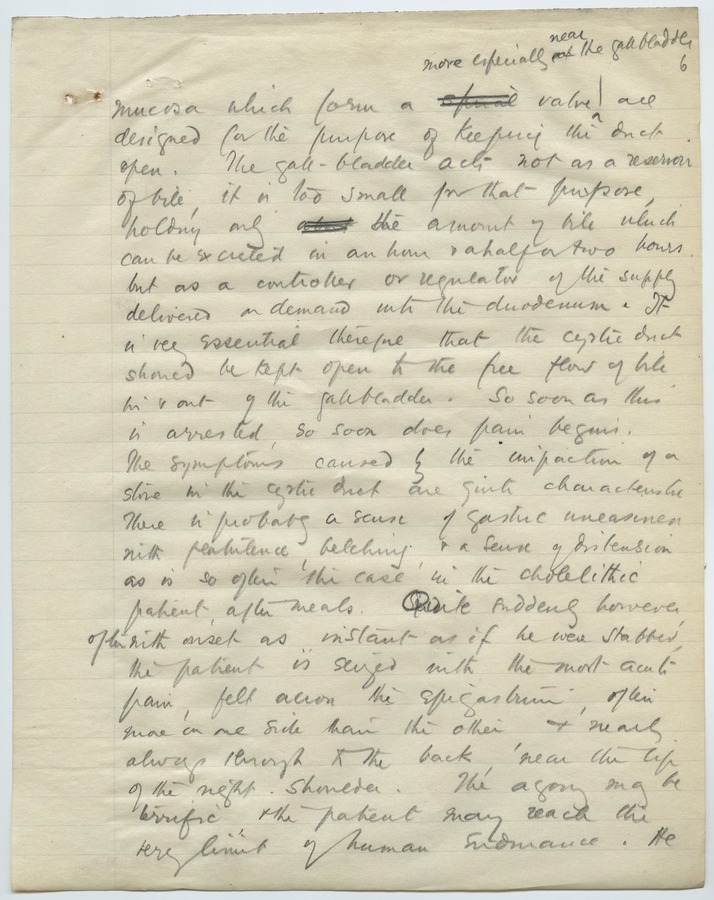 more especially near the gall bladder
6
mucosa which form a spiral valve are
designed for the purpose of keeping the duct
open. The gall-bladder acts not as a reservoir
of bile, it is too small for that purpose,
holding only about the amount of bile which
can be excreted in an hour & a half or two hours.
but as a controller or regulator of the supply
delivered on demand into the duodenum. It
is very essential therefore that the cystic duct
should be kept open to the free flow of bile
in & out of the gall bladder. So soon as this
is arrested, so soon does pain begin.
The symptoms caused by the impaction of a
stone in the cystic duct are quite characteristic
There is probably a sense of gastric uneasiness
with flatulence, belching & a sense of distension
as is so often the case, in the cholelithic
patient, after meals. Quite suddenly however
often with onset as instant as if he were stabbed,
the patient is seized with the most acute
pain, felt across the epigastrium, often
more on one side than the other & nearly
always through to the back, near the tip
of the right shoulder. The agony may be
terrific & the patient may reach the
very limit of human endurance. He